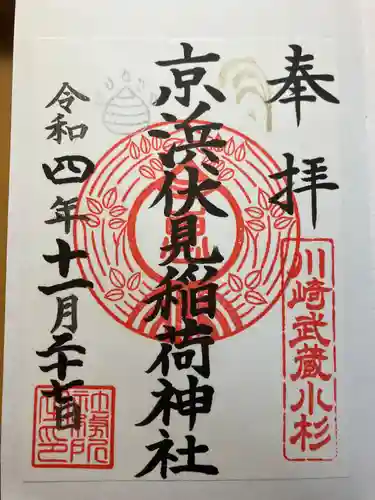 奉拝
川崎武蔵小杉
京浜伏見稲荷神社
令和四年十一月二十七日